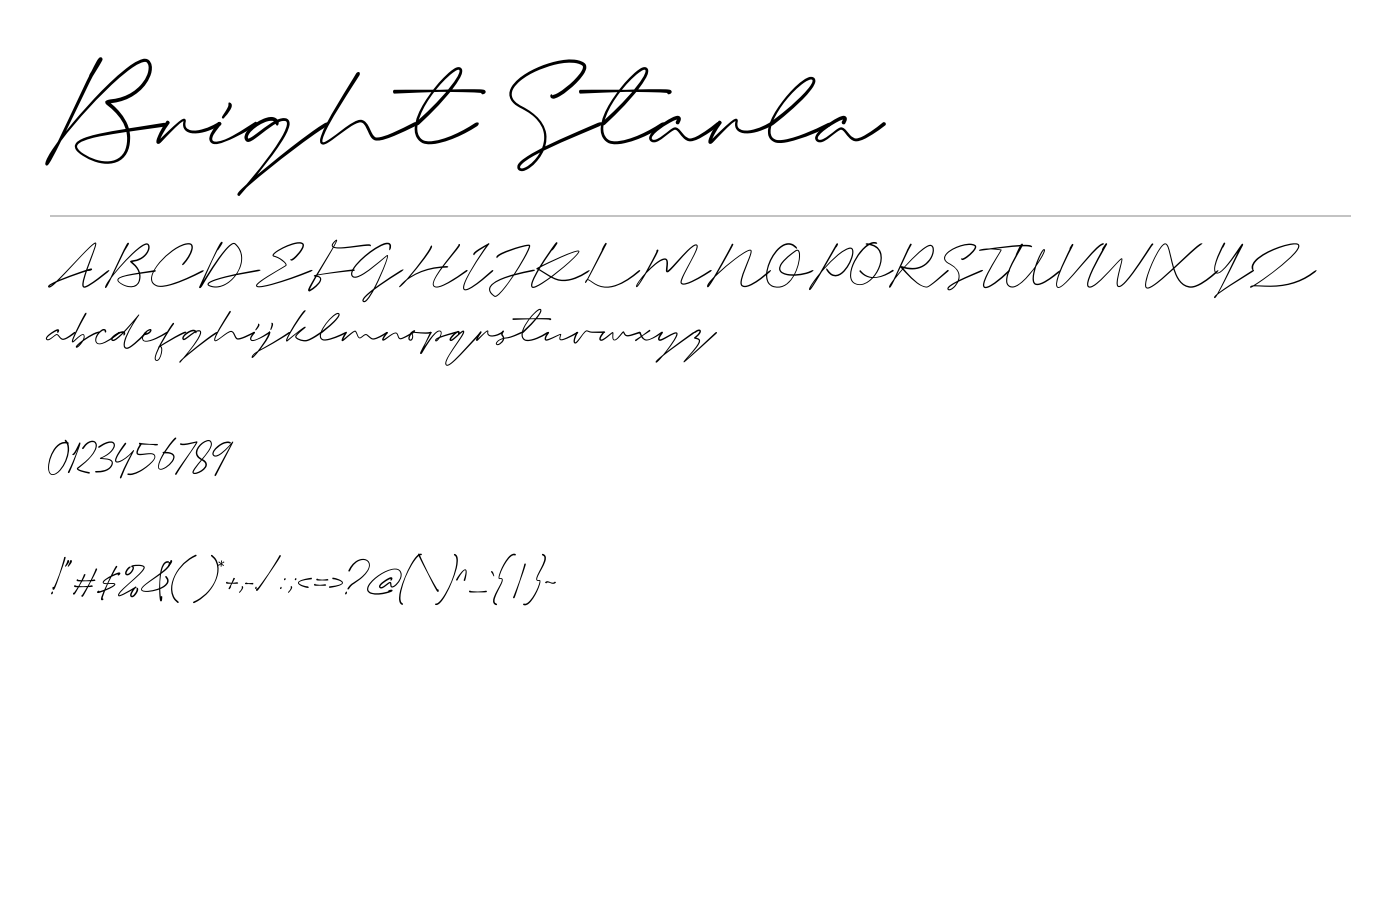 Bright Starla
ABCDEFGHIJKLMNOPQRSTUVWXYZ
abcdefghijklmnopqrstuvwxyz
0123456789
!"#$%&()*+,-./:;<=>?@[\]^_`{|}~